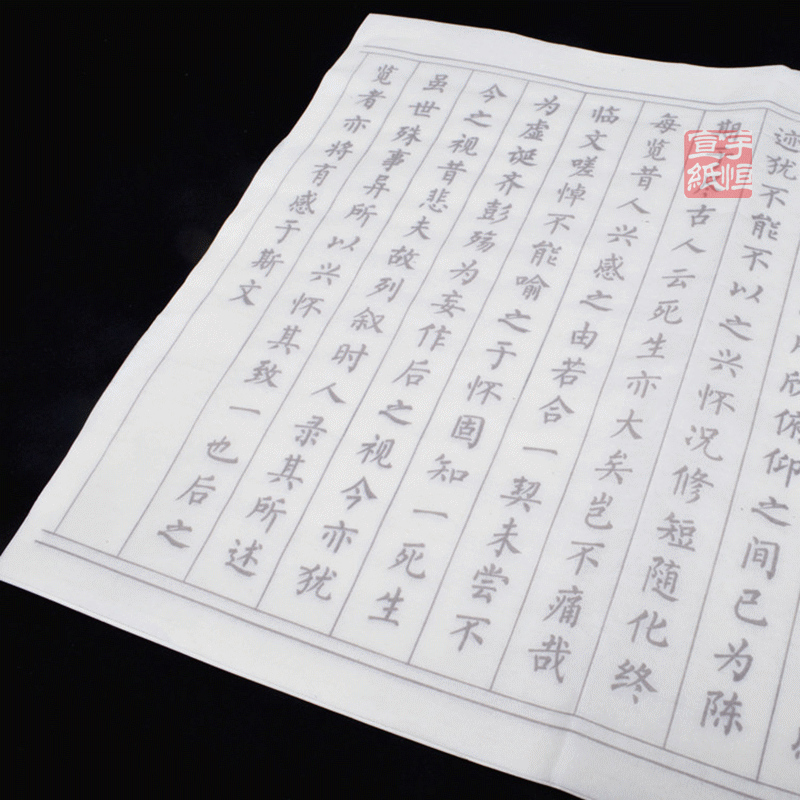 欣俯仰之间已为陈
迹犹不能不以之兴怀况修短随化终
期古人云死生亦大矣岂不痛哉
每览昔人兴感之由若合一契未尝不
临文嗟悼不能喻之于怀固知一死生
为虚诞齐彭殇为妄作后之视今亦犹
今之视昔悲夫故列叙时人录其所述
虽世殊事异所以兴怀其致一也后之
览者亦将有感于斯文
宇恒
宣紙